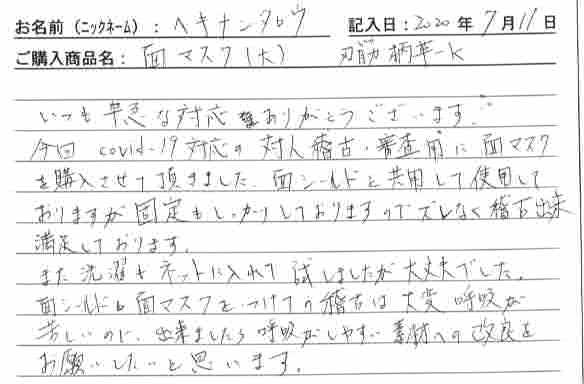 お名前（ニックネーム）：ヘキナンタロウ 記入日：2020年7月17日
ご購入商品名：面マスク（大） 刃筋 柄革-K
いつも早急な対応ありがとうございます。
今回 covid-19対応の対人稽古・審査用に面マスク
を購入させて頂きました。面シールドと共用して使用して
おりますが固定もしっかりしておりますのでズレなく稽古出来
満足しております。
また洗濯もネットに入れて試しましたが大丈夫でした。
面シールドも面マスクをつけての稽古は大変呼吸が
苦しいので、出来ましたら呼吸がしやすい素材への改良を
お願いしたいと思います。